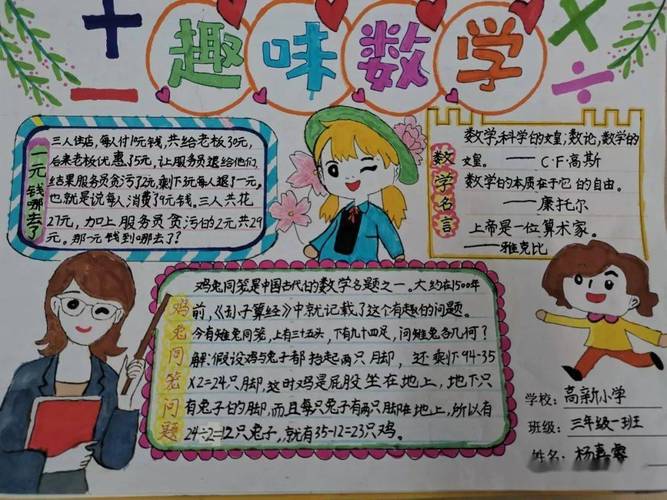 趣味数学
一元钱哪去了
三人住店,每人付10元钱,共给老板30元,
后来老板优惠了5元,让服务员退给他们,
结果服务员贪污了2元,剩下3元每人退了一元。
也就是说每人消费了9元钱。三人共花
27元,加上服务员贪污的2元共29
元。那一元钱到哪去了?
数学名言
数学,科学的女皇;数论,数学的
女皇。——C·F·高斯
数学的本质在于它的自由。
——康托尔
上帝是一位算术家。
——雅克比
鸡兔同笼问题
鸡兔同笼是中国古代的数学名题之一。大约在1500年
前,《孙子算经》中就记载了这个有趣的问题。
今有雉兔同笼,上有三十五头,下有九十四足,问雉兔各几何?
解:假设鸡与兔子都抬起两只脚,还剩下94-35
×2=24只脚,这时鸡是屁股坐在地上,地下只
有兔子的脚,而且每只兔子有两只脚在地上,所以有
24÷2=12只兔子,就有35-12=23只鸡。
学校:高新小学
班级:三年级一班
姓名:杨